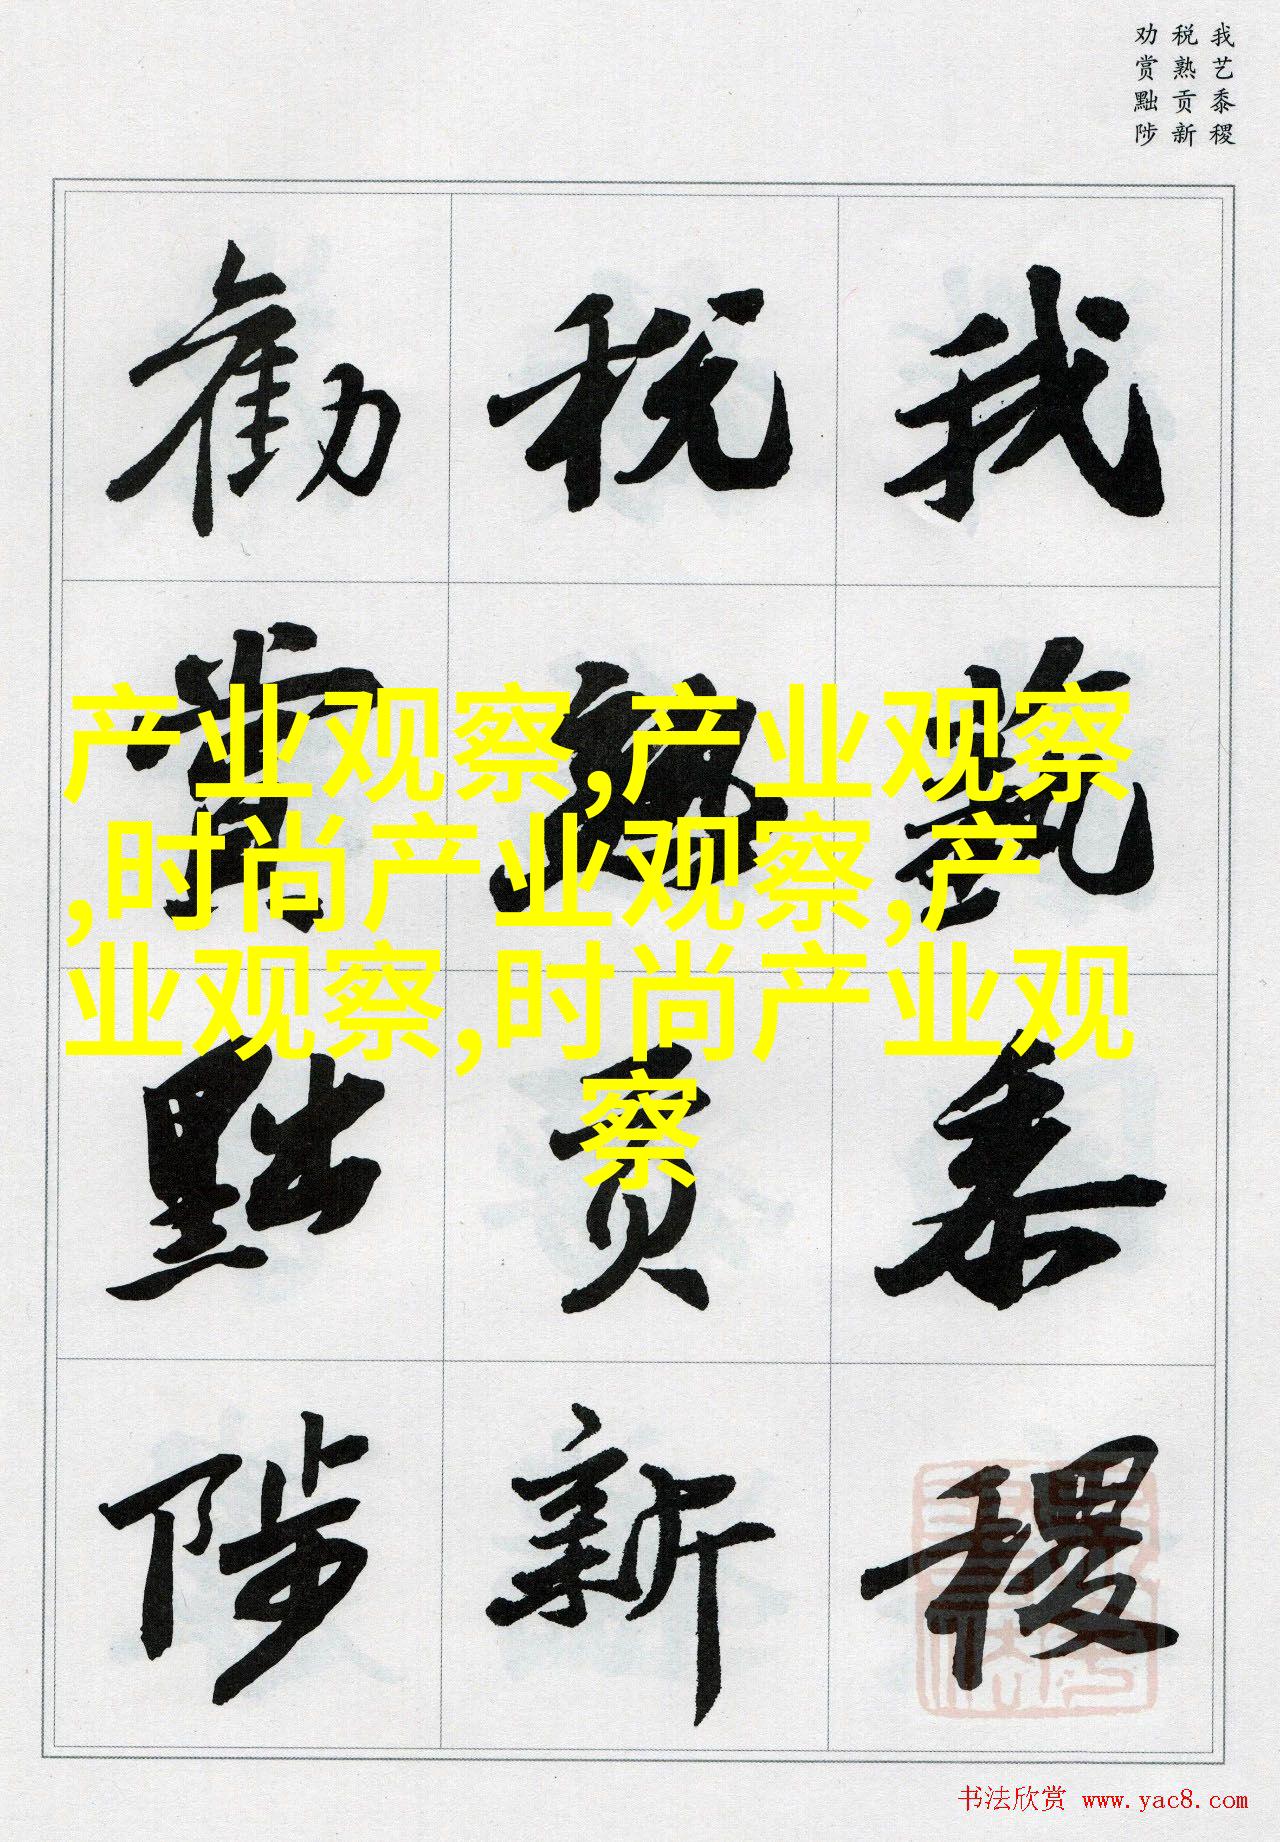 我艺黍稷
税熟贡新
劝赏黜陟
我藝黍稷
税熟貢新
勸賞黜陟
产业观察,产业观察
,时尚产业观察,产
业观察,时尚产业观
察
书法欣赏 www.yac8.com